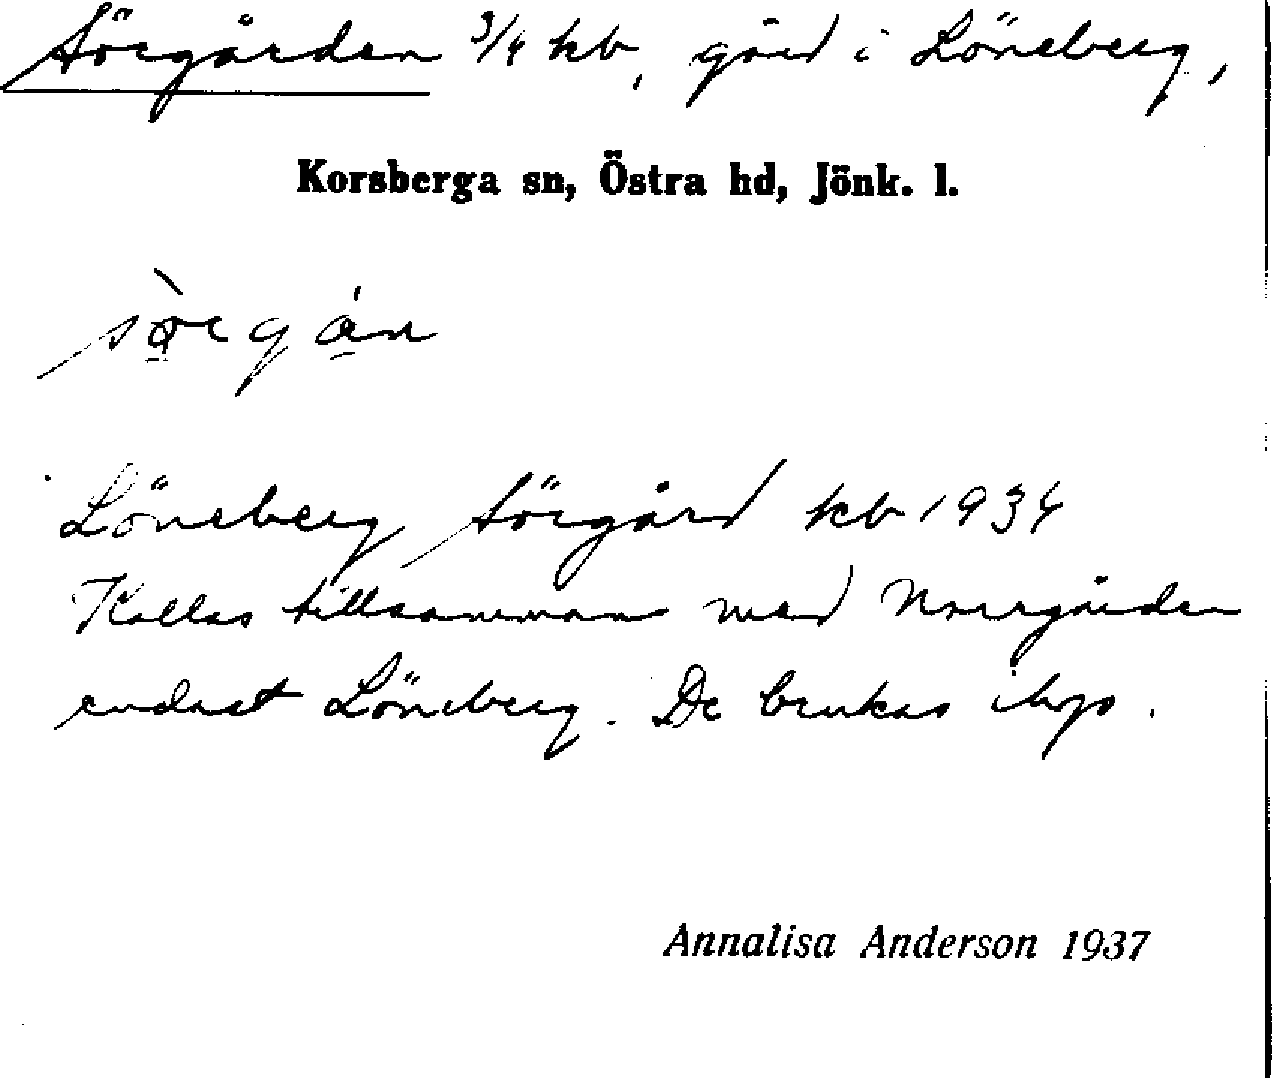 Sörgården 3/4 kb, gård i Löneberg,
Korsberga sn, Östra hd, Jönk. l.
Löneberg Sörgård kb 1934
Kallas tillsamman med Norrgården
endast Löneberg. De brukas ihop.
Annalisa Anderson 1937